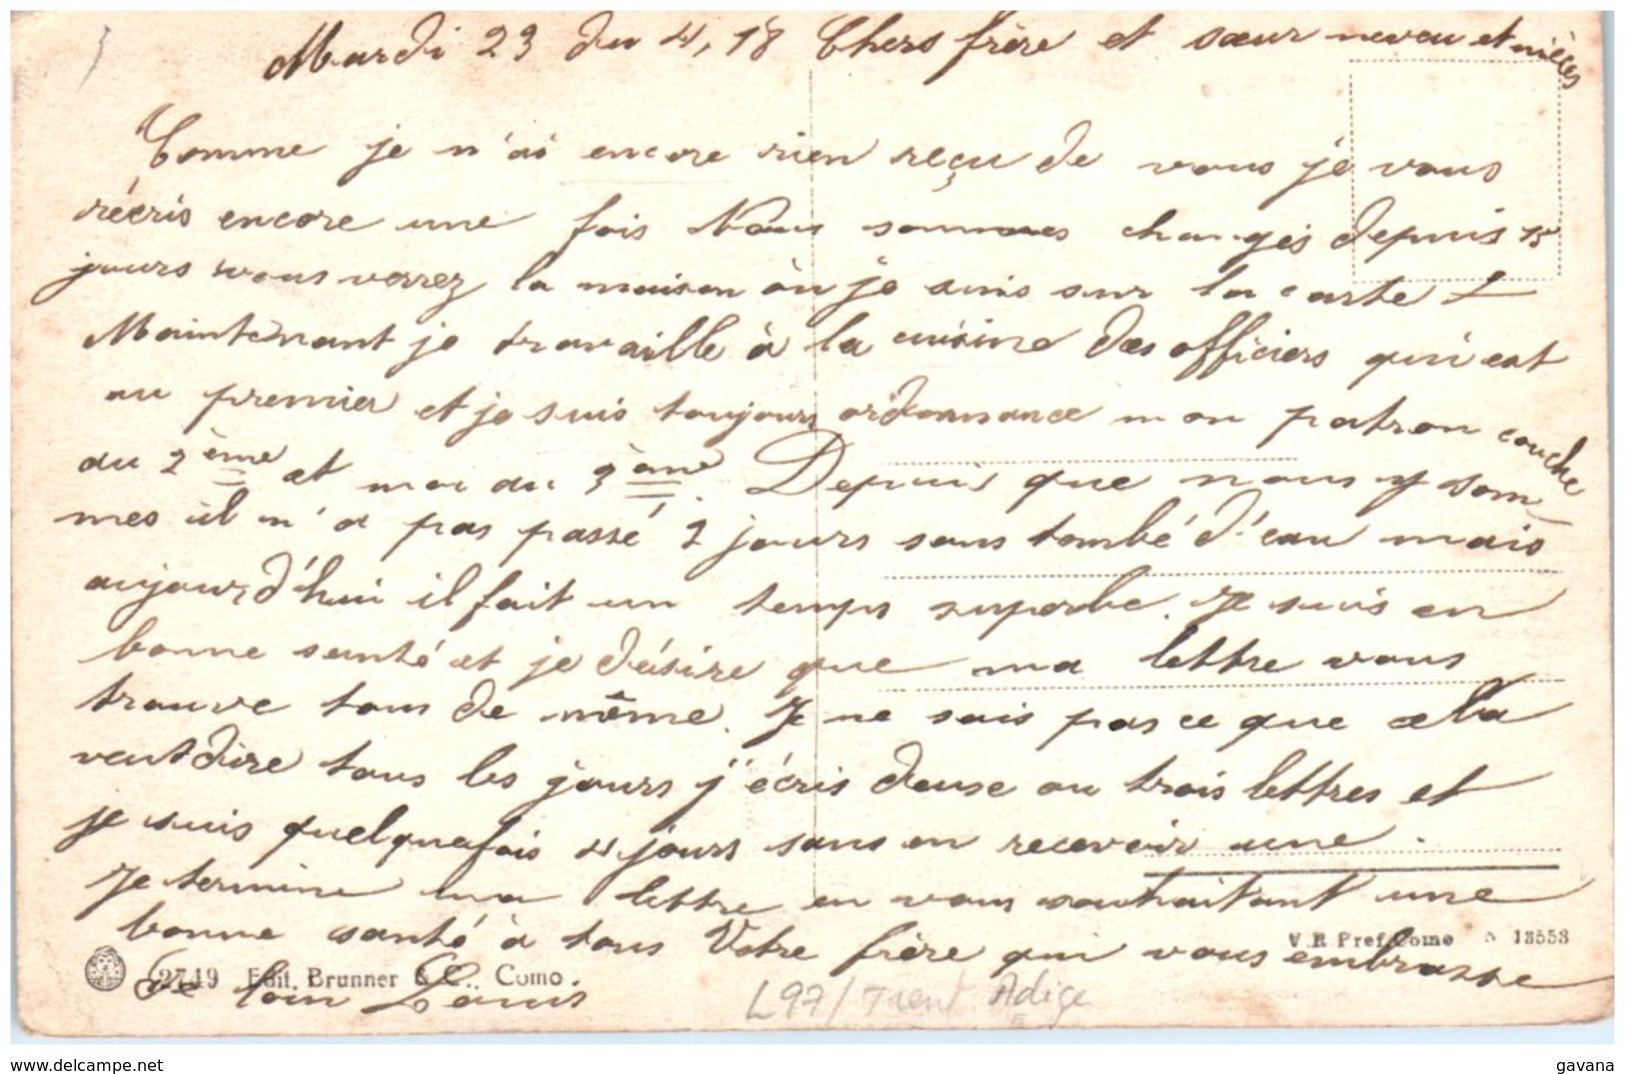 Mardi 23 du 4, 18 Chers frère et sœur neveu et nièces
Comme je n'ai encore rien reçu de vous je vous
réécris encore une fois Nous sommes changés depuis 15
jours vous verrez la maison où je suis sur la carte +
Maintenant je travaille à la cuisine des officiers qui est
au premier et je suis toujours ordonnance mon patron couche
du 2ème et moi au 3ème. Depuis que nous y som-
mes il n'a pas passé 2 jours sans tombé d'eau mais
aujourd'hui il fait un temps superbe. Je suis en
bonne santé et je désire que ma lettre vous
trouve tous de même. Je ne sais pas ce que cela
veut dire tous les jours j'écris deuse ou trois lettres et
je suis quelquefois 4 jours sans en recevoir une.
Je termine ma lettre en vous souhaitant une
bonne santé à tous Votre frère qui vous embrasse
de loin Louis
V. R. Pref. Como 13553
2749 Edit. Brunner & C., Como.
L97/Trent Adige
https://www.delcampe.net
gavana